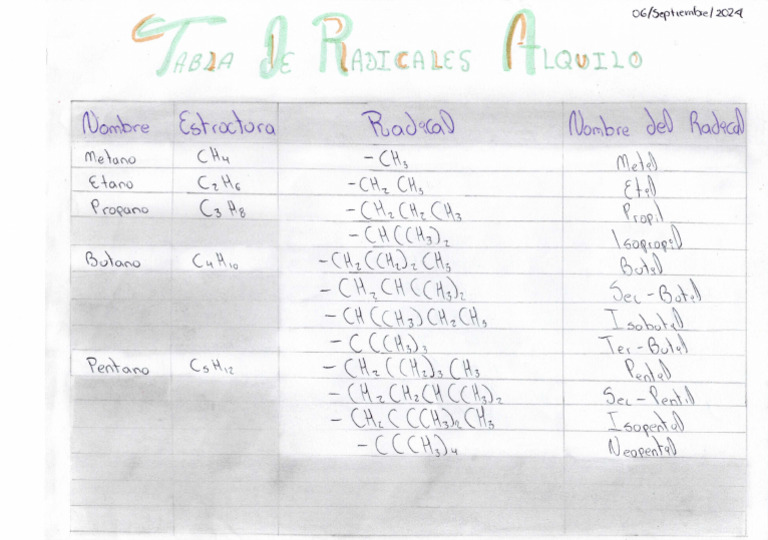 06/Septiembre/2024
TABLA DE RADICALES ALQUILO
Nombre Estructura Radical Nombre del Radical
Metano CH₄ -CH₃ Metil
Etano C₂H₆ -CH₂CH₃ Etil
Propano C₃H₈ -CH₂CH₂CH₃ Propil
-CH(CH₃)₂ Isopropil
Butano C₄H₁₀ -CH₂(CH₂)₂CH₃ Butil
-CH₂CH(CH₃)₂ Sec-Butil
-CH(CH₃)CH₂CH₃ Isobutil
-C(CH₃)₃ Ter-Butil
Pentano C₅H₁₂ -CH₂(CH₂)₃CH₃ Pentil
-CH₂CH₂CH(CH₃)₂ Sec-Pentil
-CH₂C(CH₃)₂CH₃ Isopentil
-C(CH₃)₄ Neopentil